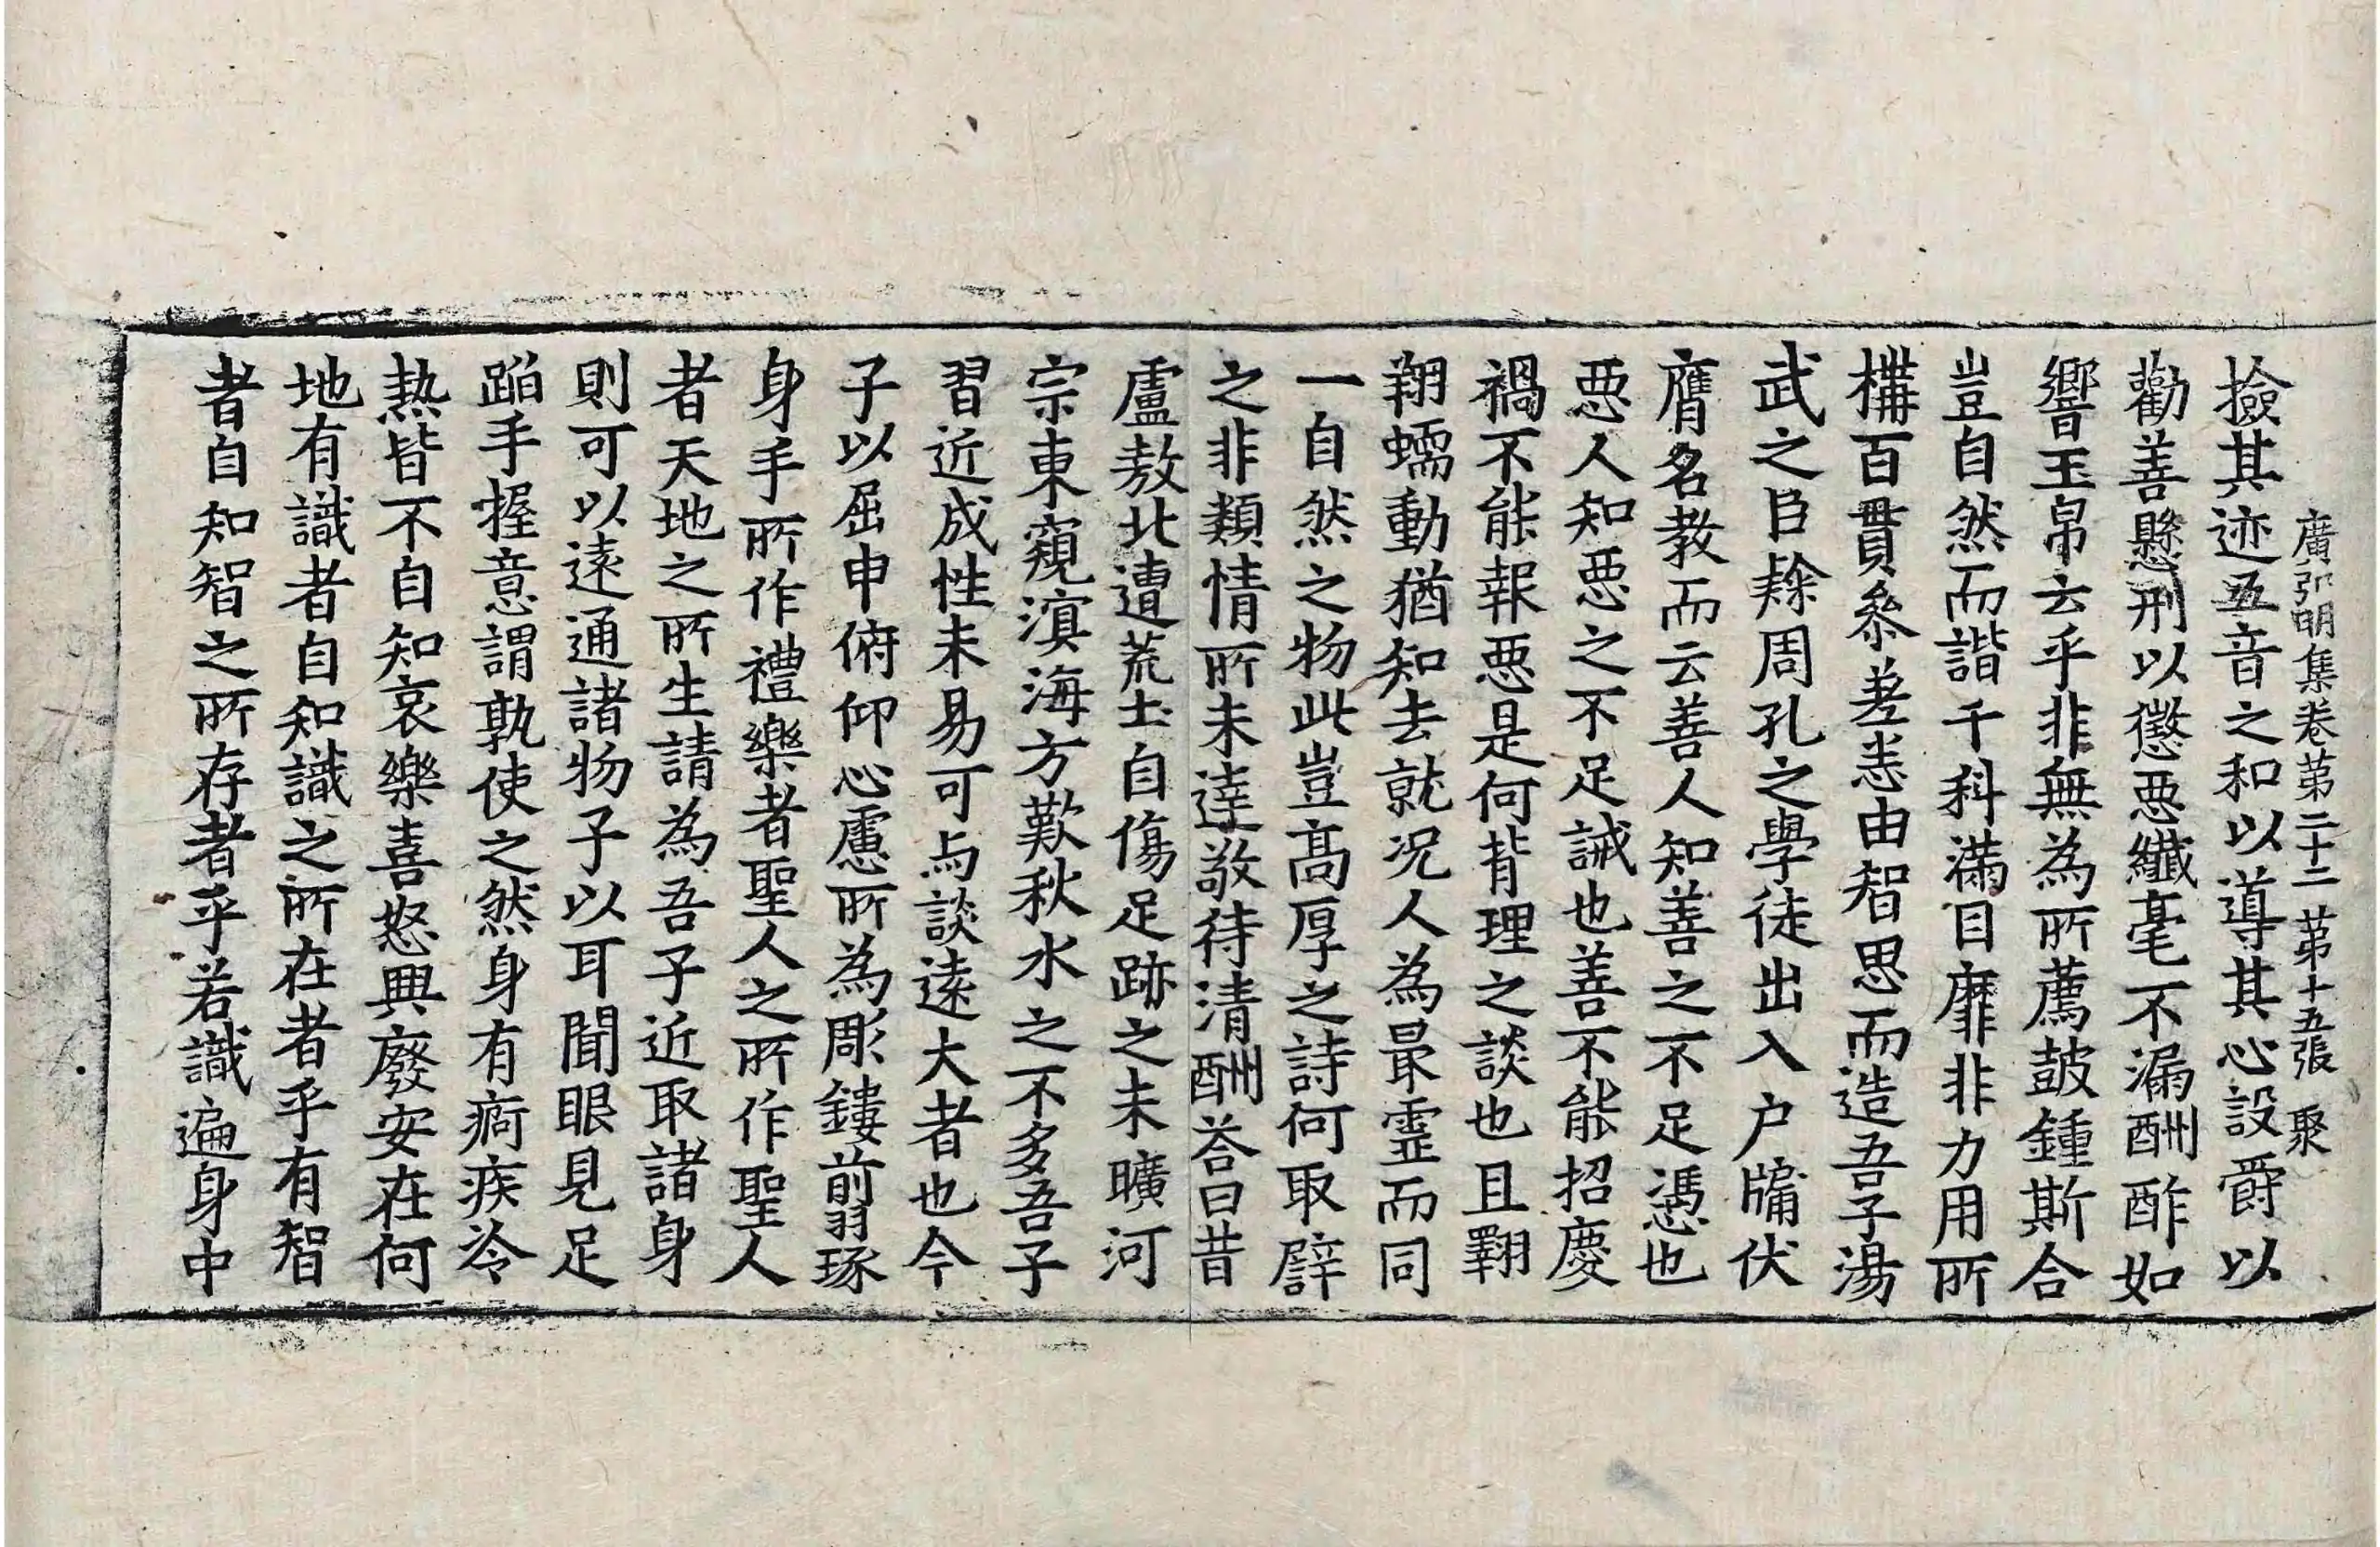 廣弘明集卷第二十二 第十五張 聚
撿其迹五音之和以導其心設爵以
勸善懸刑以懲惡纎毫不漏酬酢如
響玉帛云乎非無為所薦鼓鍾斯合
豈自然而諧千科滿目靡非力用所
構百貫叅差恙由智思而造吾子湯
武之臣隸周孔之學徒出入户牖伏
膺名教而云善人知善之不足憑也
惡人知惡之不足誡也善不能招慶
禍不能報惡是何背理之談也且翾
翔蠕動猶知去就况人為最靈而同
一自然之物此豈髙厚之詩何取譬
之非類情所未達敬待清酬荅曰昔
盧敖北遭荒士自傷足跡之未曠河
宗東窺溟海方歎秋水之不多吾子
習近成性未易可与談遠大者也今
子以屈申俯仰心慮所為彫鏤剪琢
身手所作禮樂者聖人之所作聖人
者天地之所生請為吾子近取諸身
則可以遠通諸物子以耳聞眼見足
蹈手握意謂孰使之然身有痾疾冷
熱皆不自知哀樂喜怒興廢安在何
地有識者自知識之所在者乎有智
者自知智之所存者乎若識遍身中